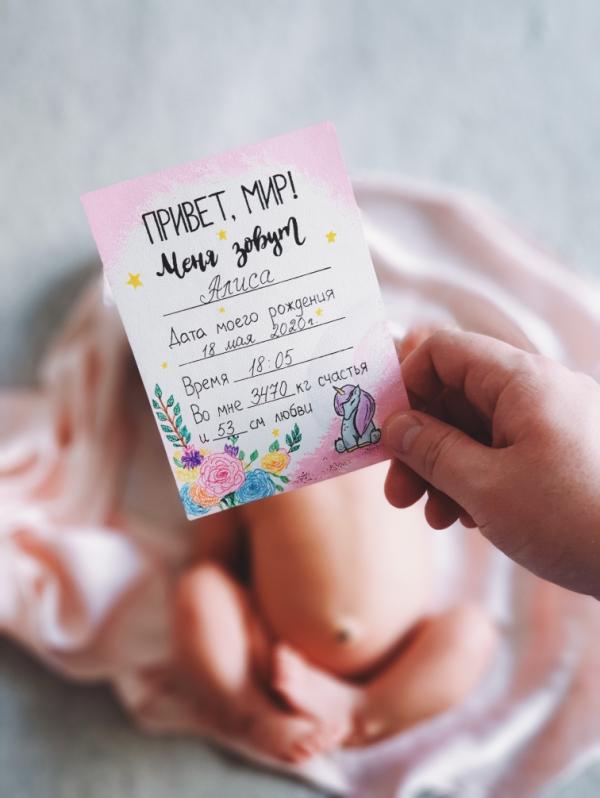 ПРИВЕТ, МИР!
Меня зовут
Алиса
Дата моего рождения
18 мая 2020г.
Время 18:05
Во мне 3470 кг счастья
и 53 см любви